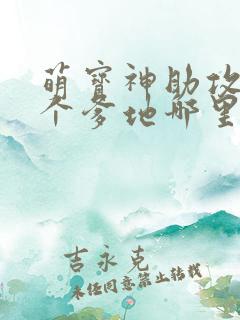 萌寳神助攻
个爹地哪里
吉永克
未经同意禁止转载